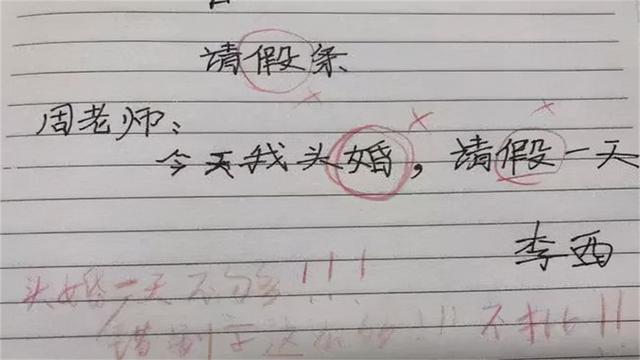 请假条
周老师：
今天我头婚，请假一天
李西
头婚一天不够！！！
错别字这么多！！！不批！！